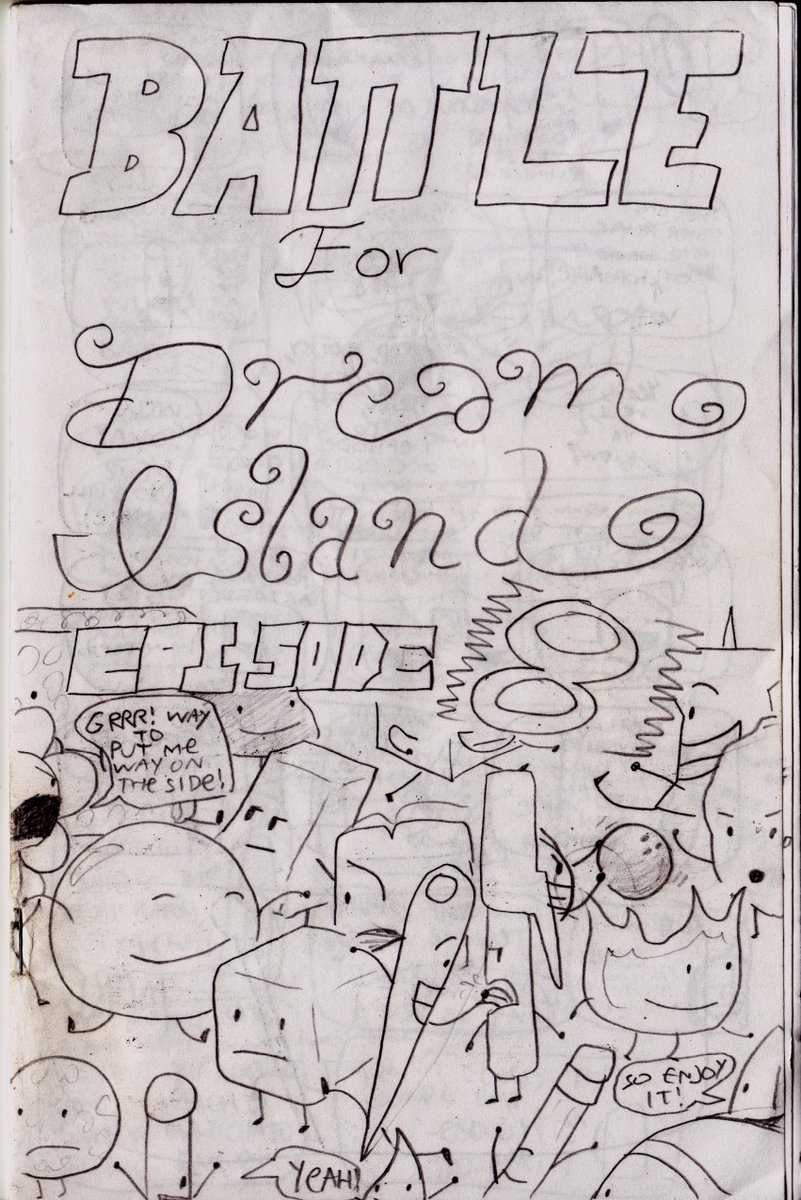 BATTLE
For
Dream
Island
EPISODE 8
GRRR! WAY
TO
PUT ME
WAY ON
THE SIDE!
SO ENJOY
IT!
YEAH!